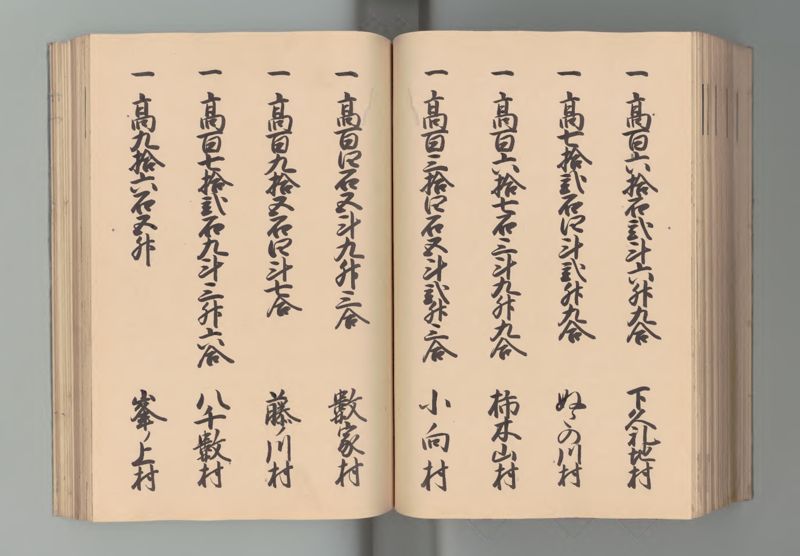 一 高百六拾石弐斗六升九合 下久礼地村
一 高七拾弐石四斗弐升九合 ぬゝの川村
一 高百六拾七石三斗九升九合 柿木山村
一 高百三拾四石五斗弐升三合 小向村
一 高百四石五斗九升三合 数家村
一 高百九拾五石四斗七合 藤ノ川村
一 高百七拾弐石九斗三升六合 八千数村
一 高九拾六石五升 峯ノ上村